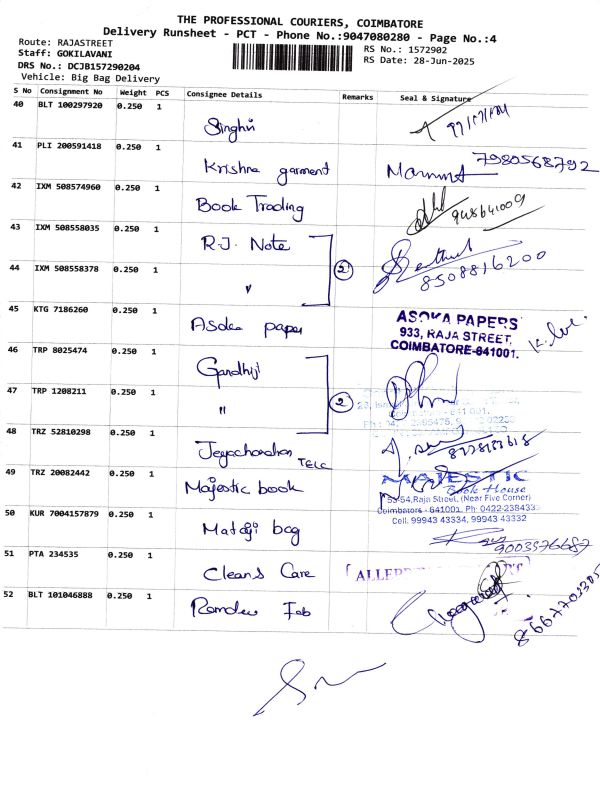 THE PROFESSIONAL COURIERS, COIMBATORE
Delivery Runsheet - PCT - Phone No.:9047080280 - Page No.:4
Route: RAJASTREET
RS No.: 1572902
Staff: GOKILAVANI
RS Date: 28-Jun-2025
DRS No.: DCJB157290204
Vehicle: Big Bag Delivery
S No Consignment No Weight PCS Consignee Details Remarks Seal & Signature
40 BLT 100297920 0.250 1
Singhvi
41 PLI 200591418 0.250 1
Krishna garment 7980568792
42 IXM 508574960 0.250 1
Book Trading
43 IXM 508558035 0.250 1
R.J. Note
44 IXM 508558378 0.250 1
" 2 8508816200
45 KTG 7186260 0.250 1
Asoka paper
ASOKA PAPERS
933, RAJA STREET,
COIMBATORE-641001.
46 TRP 8025474 0.250 1
Gandhiji
47 TRP 1208211 0.250 1
" 2
48 TRZ 52810298 0.250 1
Jeyachandran TELC
49 TRZ 20082442 0.250 1
Majestic book
MAJESTIC
Book House
53-54, Raja Street, (Near Five Corner)
Coimbatore - 641001. Ph: 0422-238433
Cell. 99943 43334, 99943 43332
50 KUR 7004157879 0.250 1
Mataji bag
9003576687
51 PTA 234535 0.250 1
Cleans Care
52 BLT 101046888 0.250 1
Ramdev Fab